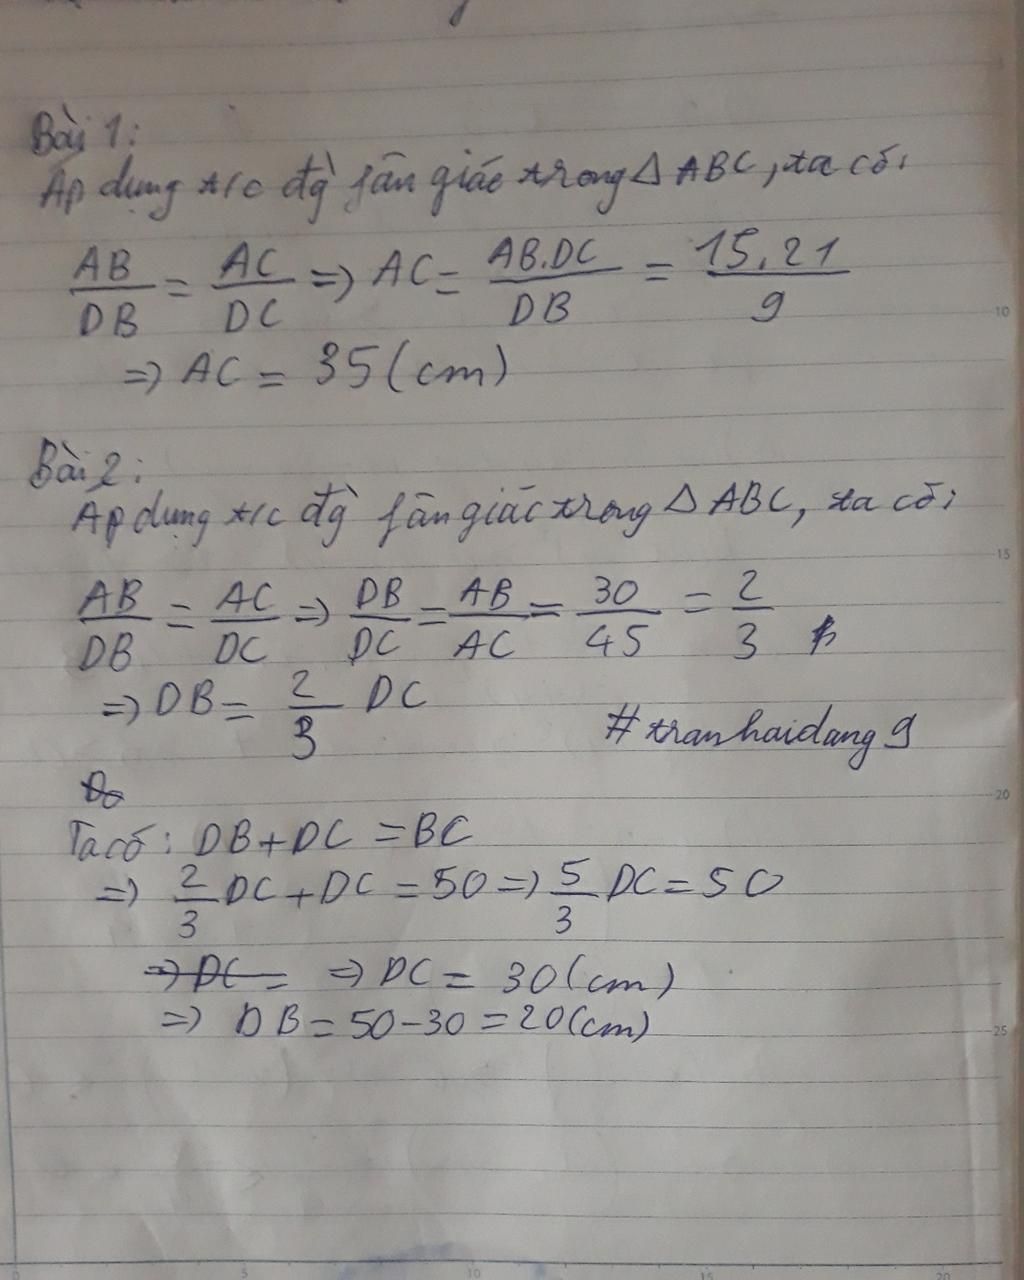 Bài 1:
Áp dụng t/c đg fân giác trong Δ ABC, ta có:
AB/DB = AC/DC => AC = AB.DC/DB = 15.21/9
=> AC = 35 (cm)
Bài 2:
Áp dụng t/c đg fân giác trong Δ ABC, ta có:
AB/DB = AC/DC => DB/DC = AB/AC = 30/45 = 2/3
=> DB = 2/3 DC
#tranhaidang9
Ta có: DB + DC = BC
=> 2/3 DC + DC = 50 => 5/3 DC = 50
=> DC = => DC = 30 (cm)
=> DB = 50 - 30 = 20 (cm)
10
15
20
25
5
10
15
20